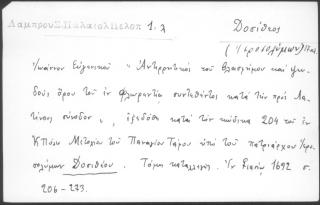 Λάμπρου Σ. Παλαιολ Πελοπ 1. λ
Δοσίθεος
(Ἱεροσολύμων) Πατ.
Ἰωάννου Εὐγενικοῦ "Ἀντιρρητικὸς τοῦ βλασφήμου καὶ ψευ-
δοῦς ὅρου τοῦ ἐν Φλωρεντίᾳ συντεθέντος κατὰ τὴν πρὸς Λα-
τίνους σύνοδον", ἐξεδόθη κατὰ τὸν κώδικα 204 τοῦ ἐν
Κ/Πόλει Μετοχίου τοῦ Παναγίου Τάφου ὑπὸ τοῦ πατριάρχου Ἱερο-
σολύμων Δοσιθέου. Τόμος καταλλαγῆς. Ἐν Ἰασίῳ 1692 σ.
206-273.